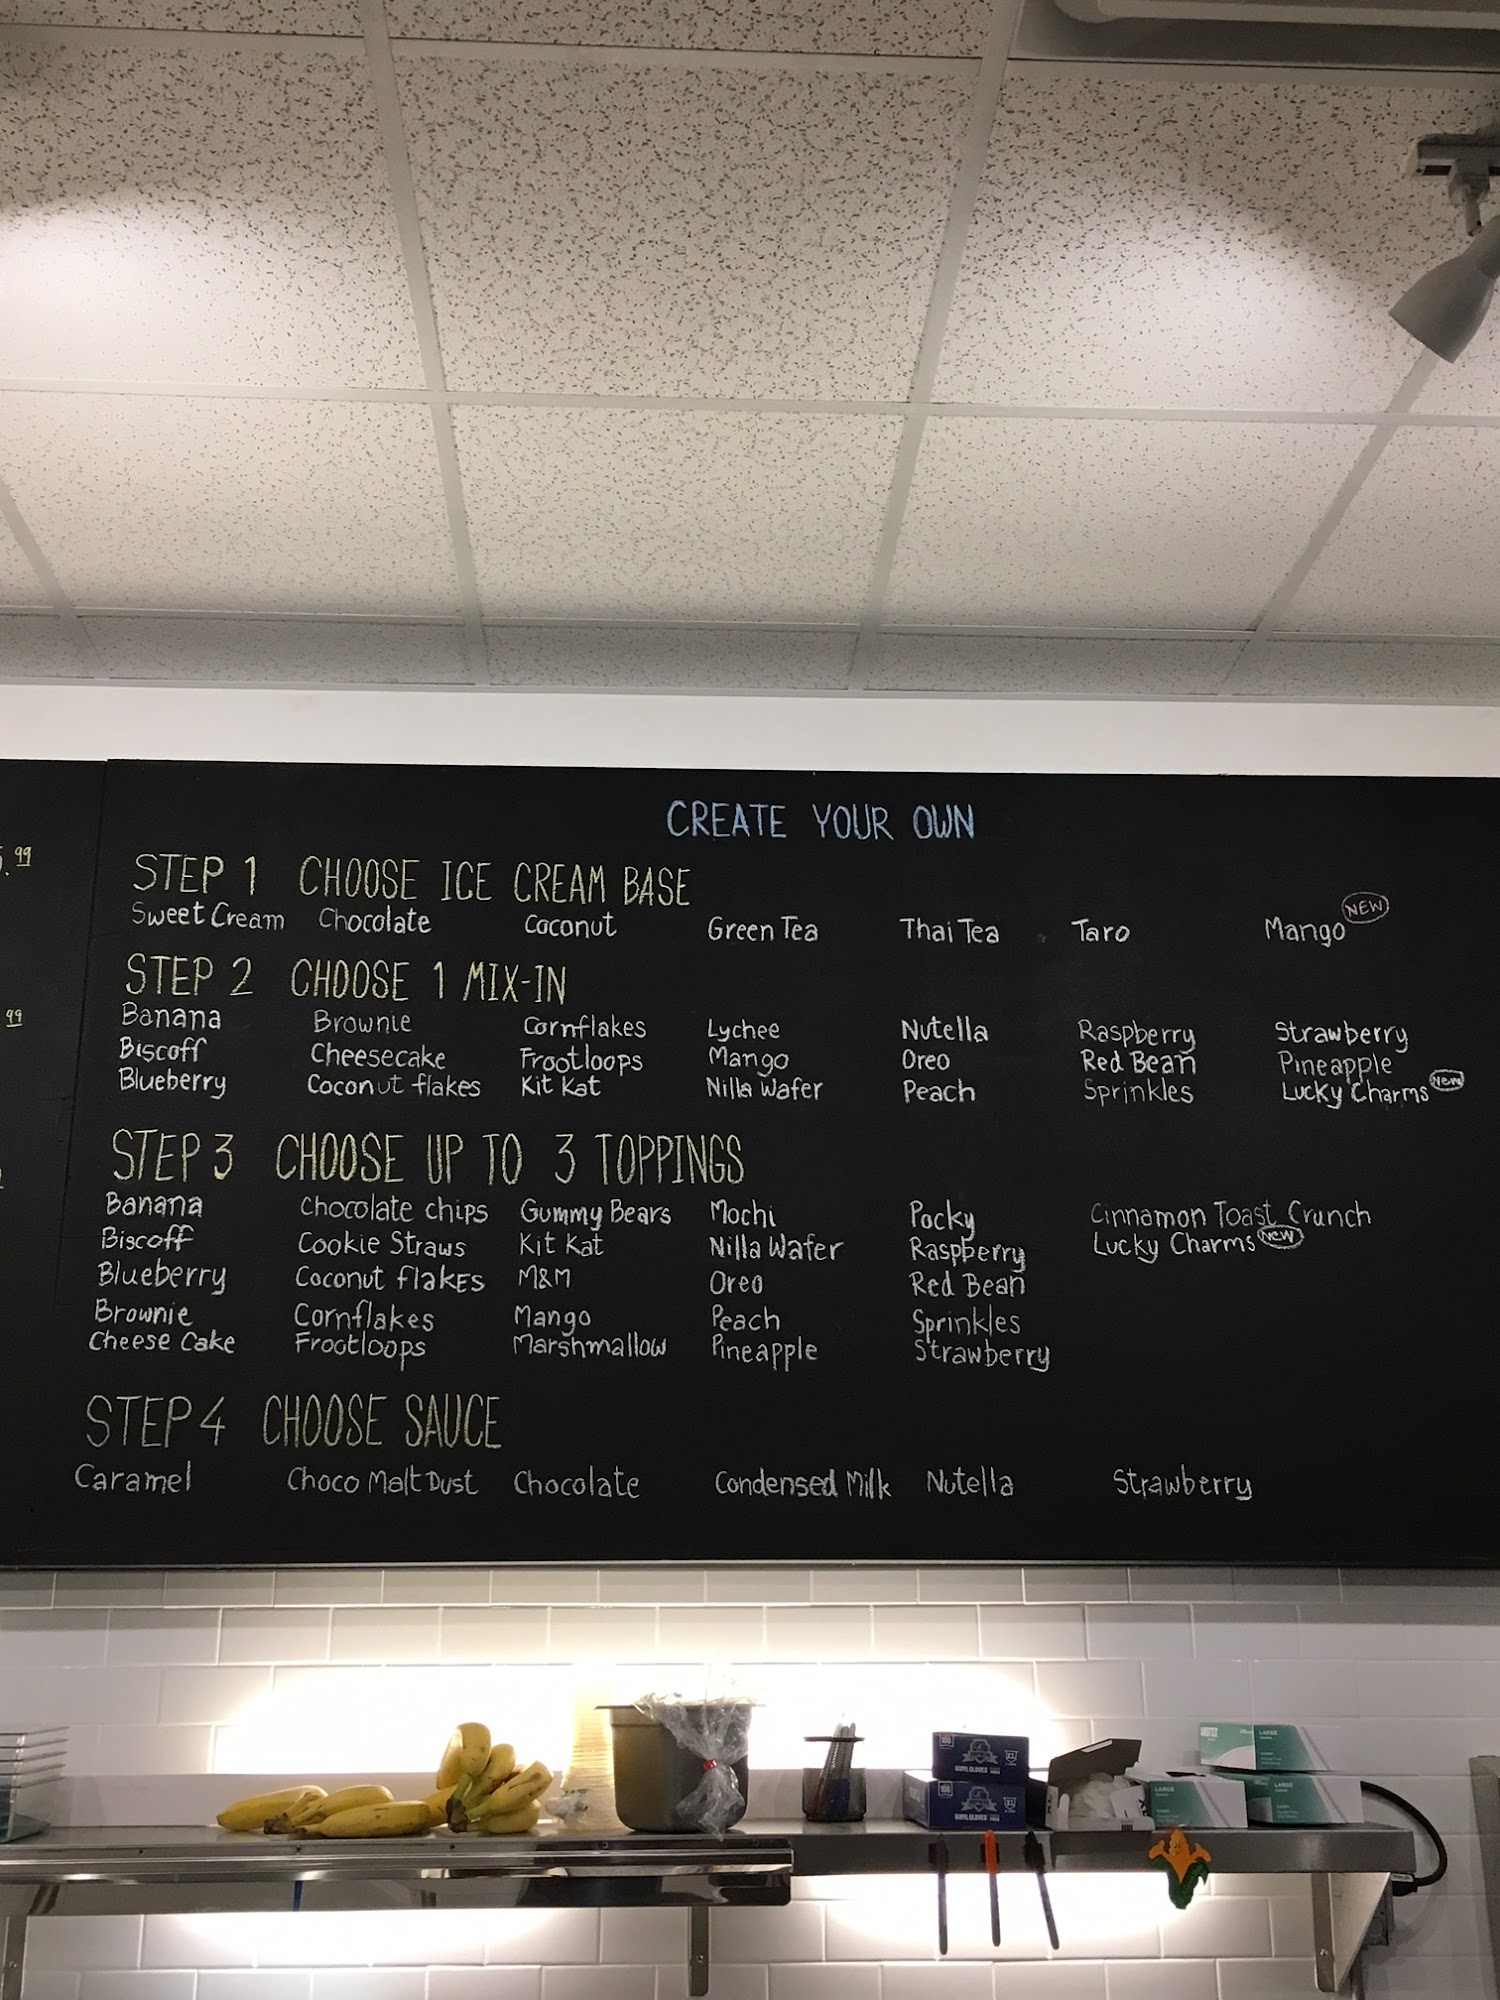 CREATE YOUR OWN
.99
STEP 1 CHOOSE ICE CREAM BASE
Sweet Cream Chocolate Coconut Green Tea Thai Tea Taro Mango NEW
STEP 2 CHOOSE 1 MIX-IN
99
Banana Brownie Cornflakes Lychee Nutella Raspberry Strawberry
Biscoff Cheesecake Frootloops Mango Oreo Red Bean Pineapple
Blueberry Coconut flakes Kit Kat Nilla Wafer Peach Sprinkles Lucky Charms New
STEP 3 CHOOSE UP TO 3 TOPPINGS
Banana Chocolate chips Gummy Bears Mochi Pocky Cinnamon Toast Crunch
Biscoff Cookie Straws Kit Kat Nilla Wafer Raspberry Lucky Charms New
Blueberry Coconut flakes M&M Oreo Red Bean
Brownie Cornflakes Mango Peach Sprinkles
Cheese Cake Frootloops Marshmallow Pineapple Strawberry
STEP 4 CHOOSE SAUCE
Caramel Choco Malt Dust Chocolate Condensed Milk Nutella Strawberry
LARGE
100 XL
VINYL GLOVES
100 XL
VINYL GLOVES
LARGE
LARGE